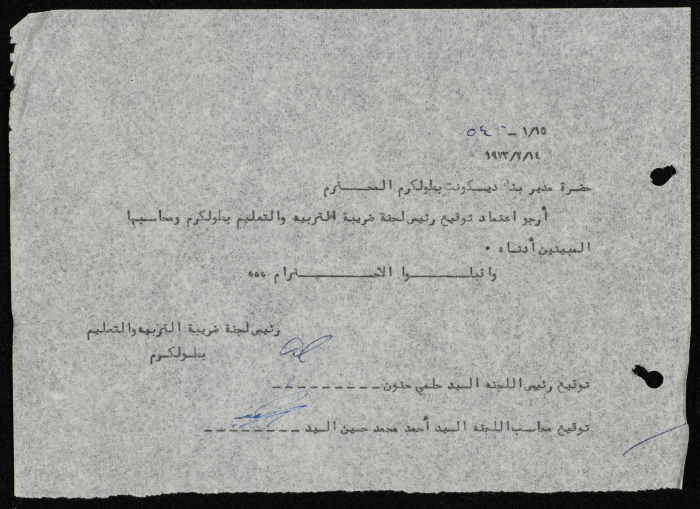 ١/١٥ – ٥٤٠
١٩٧٣/٢/١٤
حضرة مدير بنك ديسكونت بطولكرم المحـــترم
أرجو اعتماد توقيع رئيس لجنة ضريبة التربيه والتعليم بطولكرم ومحاسبها
المبينين أدناه .
واقبلـــــوا الاحـــــترام ،،،
رئيس لجنة ضريبة التربيه والتعليم
بطولكرم
توقيع رئيس اللجنه السيد حلمي حنون ـ ـ ـ ـ ـ ـ ـ ـ
توقيع محاسب اللجنه السيد أحمد محمد حسين السيد ـ ـ ـ ـ ـ ـ ـ ـ